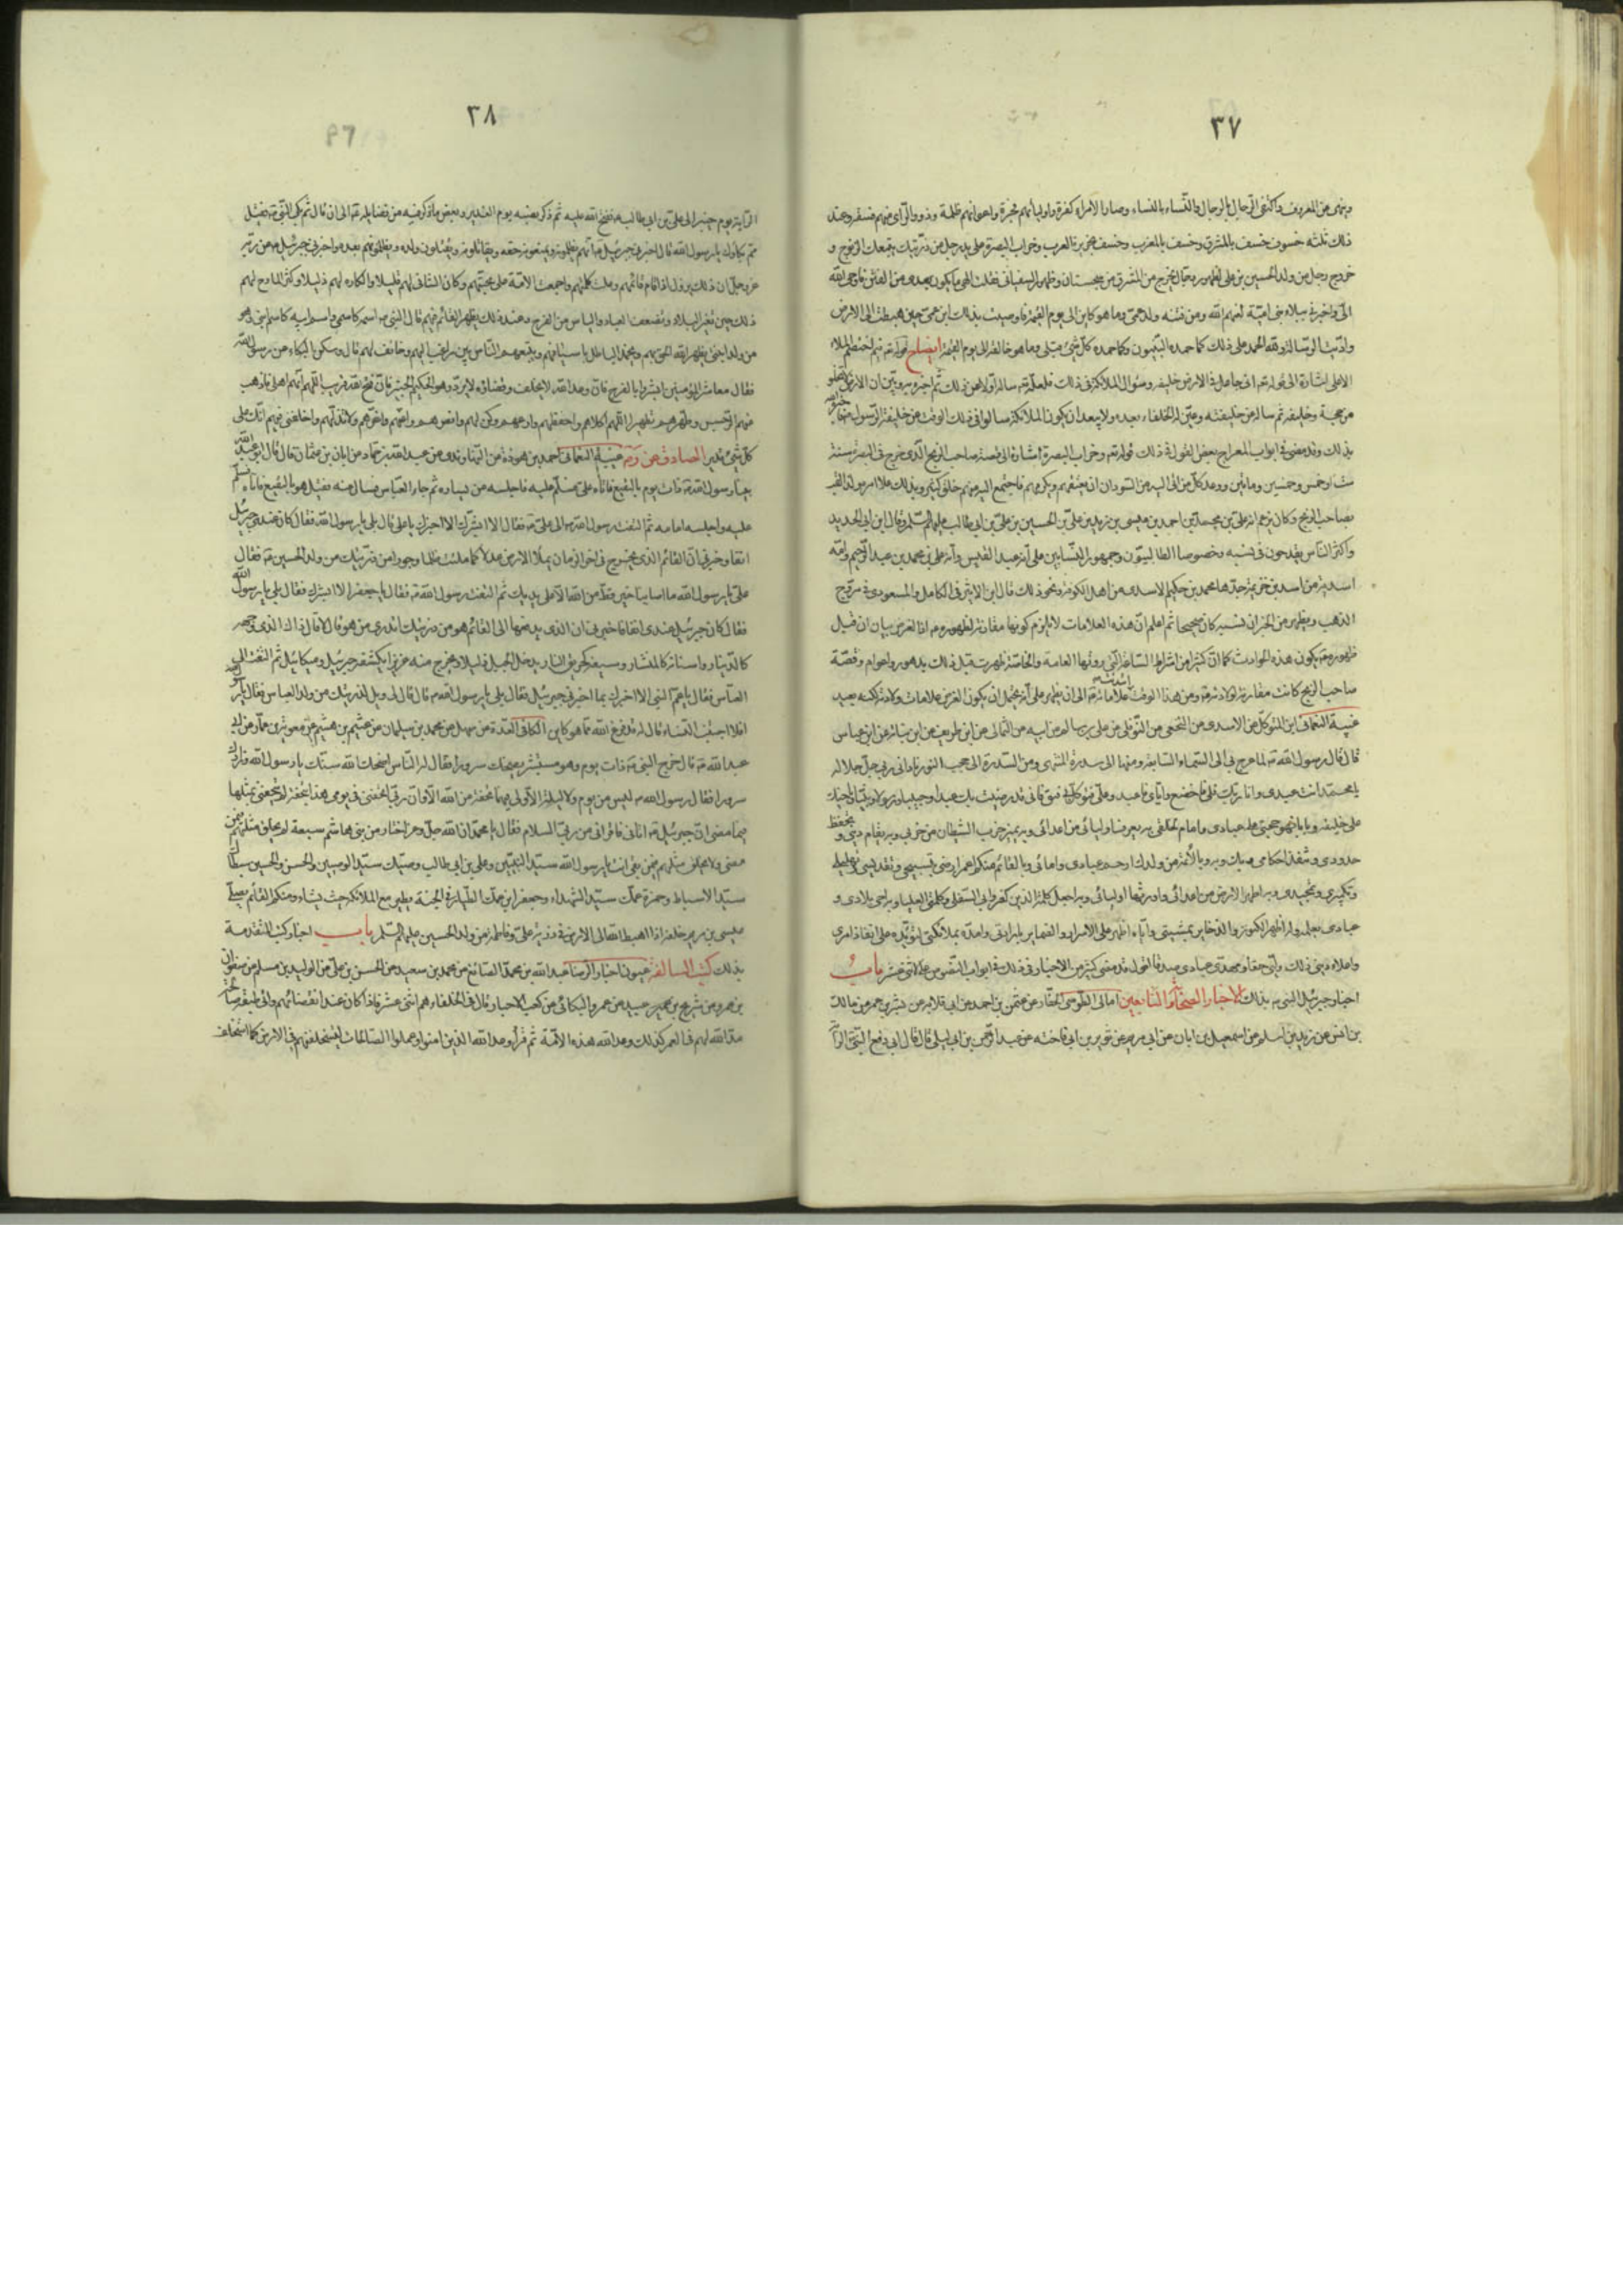 ٣٧
وينهى عن المعروف واكتفى الرجال بالرجال والنساء بالنساء وصار الامراء كفرة واولياؤهم فجرة واعوانهم ظلمة وذوو الراى منهم فسقة وعند
ذلك ثلثة خسوف خسف بالمشرق وخسف بالمغرب وخسف بجزيرة العرب وخراب البصرة على يد رجل من ذريتك يتبعه الزنوج و
خروج رجل من ولد الحسين بن على وظهور الدجال يخرج من المشرق من سجستان وظهور السفيانى فقلت الهى ما يكون بعدى من الفتن فاوحى الله
الىّ واخبرنى ببلاء بنى امية لعنهم الله ومن فتنة ولد عمى وما هو كاين الى يوم القيمة فاوصيت بذلك ابن عمى حين هبطت الى الارض
واديت الرسالة ولله الحمد على ذلك كما حمده النبيون وكما حمده كل شئ قبلى وما هو خالقه الى يوم القيمة ايضاح قوله تم اختصم الملاء
الاعلى اشارة الى قوله تم انى جاعل فى الارض خليفة وسؤال الملائكة فى ذلك فلعله تم ساله اولا عن ذلك ثم اخبره وبين ان الارض لا تخلو
من حجة وخليفة ثم ساله عن خليفته وعين له الخلفاء بعده ولا يبعد ان يكون الملائكة سالوا فى ذلك الوقت عن خليفة الرسول فاخبره الله
بذلك وقد مضى فى ابواب المعراج بعض القول فى ذلك قوله تم وخراب البصرة اشارة الى قصة صاحب الزنج الذى خرج فى البصرة سنة
ست او خمس وخمسين ومائتين ووعد كل من اتى اليه من السودان ان يعتقهم ويكرمهم فاجتمع اليه منهم خلق كثير وبذلك علا امره ولذا لقب
بصاحب الزنج وكان يزعم انه على بن محمد بن احمد بن عيسى بن زيد بن على بن الحسين بن على بن ابى طالب عليهم السلم وقال ابن ابى الحديد
واكثر الناس يقدحون فى نسبه وخصوصا الطالبيون وجمهور النسابين على انه من عبد القيس وانه على بن محمد بن عبد الرحيم وامه
اسدية من اسد بن خزيمة جدها محمد بن حكيم الاسدى من اهل الكوفة ونحو ذلك قال ابن الاثير فى الكامل والمسعودى فى مروج
الذهب ويظهر من الخبر ان نسبه كان صحيحا ثم اعلم ان هذه العلامات لا يلزم كونها مقارنة لظهوره م اذ الغرض بيان ان قبل
ظهوره م يكون هذه الحوادث كما ان كثيرا من اشراط الساعة التى روتها العامة والخاصة ظهرت قبل ذلك بدهور واعوام وقصة
صاحب الزنج كانت مقارنة لولادته م ومن هذا الوقت ابتدئت علاماته م الى ان يظهر على انه يحتمل ان يكون الغرض علامات ولادته لكنه بعيد
غيبة النعمانى ابن المتوكل عن الاسدى عن النخعى عن النوفلى عن على بن سالم عن ابيه عن الثمالى عن ابن طريف عن ابن نباتة عن ابن عباس
قال قال رسول الله م لما عرج بى الى السماء السابعة ومنها الى سدرة المنتهى ومن السدرة الى حجب النور نادانى ربى جل جلاله
يا محمد انت عبدى وانا ربك فلى فاخضع واياى فاعبد وعلى فتوكل وبى فثق فانى قد رضيت بك عبدا وحبيبا ورسولا ونبيا وباخيك
على خليفة وبابا فهو حجتى على عبادى وامام لخلقى به يعرف اوليائى من اعدائى وبه يميز حزب الشيطان من حزبى وبه يقام دينى وتحفظ
حدودى وتنفذ احكامى وبك وبه وبالائمة من ولدك ارحم عبادى وامائى وبالقائم منكم اعمر ارضى بتسبيحى وتقديسى وتهليلى
وتكبيرى وتمجيدى وبه اطهر الارض من اعدائى واورثها اوليائى وبه اجعل كلمة الذين كفروا بى السفلى وكلمتى العليا وبه احيى بلادى و
عبادى بعلمى وله اظهر الكنوز والذخاير بمشيتى واياه اظهر على الاسرار والضماير بارادتى وامده بملائكتى لتؤيده على انفاذ امرى
واعلاء دينى ذلك وليى حقا ومهدى عبادى صدقا اقول قد مضى كثير من الاخبار فى ذلك فى ابواب النصوص على الاثنى عشر باب
اخبار جبرئيل النبى م بذلك الاخبار الصحابة والتابعين امالى الطوسى الحفار عن عثمن بن احمد عن ابى قلابة عن بشر بن عمر عن مالك
بن انس عن زيد بن اسلم عن اسمعيل بن ابان عن ابى مريم عن ثوير بن ابى فاخته عن عبد الرحمن بن ابى ليلى قال قال ابى دفع النبى م الراية
٣٨
٩٦
الراية يوم خيبر الى على بن ابى طالب م ففتح الله عليه ثم ذكر نصبه يوم الغدير وبعض ما ذكر فيه من فضايله م الى ان قال ثم بكى النبى م فقيل
مم بكاؤك يا رسول الله قال اخبرنى جبرئيل م انهم يظلمونه ويمنعونه حقه ويقاتلونه ويقتلون ولده ويظلمونهم بعده واخبرنى جبرئيل م عن ربه
عز وجل ان ذلك يزول اذا قام قائمهم وعلت كلمتهم واجمعت الامة على محبتهم وكان الشانى لهم قليلا والكاره لهم ذليلا وكثر المادح لهم
ذلك حين تغير البلاد وتضعف العباد والياس من الفرج وعند ذلك يظهر القائم فيهم قال النبى م اسمه كاسمى واسم ابيه كاسم ابنى وهو
من ولد ابنتى يظهر الله الحق بهم ويخمد الباطل باسيافهم ويتبعهم الناس بين راغب اليهم وخائف لهم قال وسكن البكاء عن رسول الله
فقال معاشر المؤمنين ابشروا بالفرج فان وعد الله لا يخلف وقضاؤه لا يرد وهو الحكيم الخبير فان فتح الله قريب اللهم انهم اهلى فاذهب
عنهم الرجس وطهرهم تطهيرا اللهم اكلاهم واحفظهم وارعهم وكن لهم وانصرهم واعنهم واعزهم ولا تذلهم واخلفنى فيهم انك على
كل شئ قدير الصادق عن رسم غيبة النعمانى احمد بن هوذة عن النهاوندى عن عبد الله بن حماد عن ابان بن عثمان قال قال ابو عبد الله
بينا رسول الله م ذات يوم بالبقيع فاتاه على م فسلم عليه فاجلسه عن يساره ثم جاء العباس فسال عنه فقيل هو بالبقيع فاتاه فسلم
عليه واجلسه امامه ثم التفت رسول الله م الى على م فقال الا ابشرك الا اخبرك يا على قال بلى يا رسول الله فقال كان عندى جبرئيل
انفا وخبرنى ان القائم الذى يخرج فى اخر الزمان يملأ الارض عدلا كما ملئت ظلما وجورا من ذريتك من ولد الحسين م فقال
على يا رسول الله ما اصابنا خير قط من الله الا على يديك ثم التفت رسول الله م فقال يا جعفر الا ابشرك فقال بلى يا رسول الله
فقال كان جبرئيل عندى انفا فاخبرنى ان الذى يدفعها الى القائم هو من ذريتك اتدرى من هو قال لا قال ذاك الذى وجهه
كالدينار واسنانه كالمنشار وسيفه كحريق النار يدخل الجبل ذليلا ويخرج منه عزيزا يكتنفه جبرئيل وميكائيل ثم التفت الى
العباس فقال يا عم النبى الا اخبرك بما اخبرنى جبرئيل فقال بلى يا رسول الله م قال قال لى ويل لذريتك من ولد العباس فقال يا رسول الله
افلا اجتنب النساء قال له قد فرغ الله مما هو كاين الكافى العدة عن سهل عن محمد بن سليمان عن هيثم بن اشيم عن معوية بن عمار عن ابى
عبد الله م قال خرج النبى م ذات يوم وهو مستبشر يضحك سرورا فقال له الناس اضحك الله سنك يا رسول الله وزادك
سرورا فقال رسول الله م ليس من يوم ولا ليلة الا ولى فيهما تحفة من الله الا وان ربى اتحفنى فى يومى هذا بتحفة لم يتحفنى بمثلها
فيما مضى ان جبرئيل م اتانى فاقرانى من ربى السلام فقال يا محمد ان الله جل وعز اختار من بنى هاشم سبعة لم يخلق مثلهم فيمن
مضى ولا يخلق مثلهم فيمن بقى انت يا رسول الله سيد النبيين وعلى بن ابى طالب وصيك سيد الوصيين والحسن والحسين سبطاك
سيدا الاسباط وحمزة عمك سيد الشهداء وجعفر ابن عمك الطيار فى الجنة يطير مع الملائكة حيث يشاء ومنكم القائم يصلى
عيسى بن مريم خلفه اذا اهبطه الله الى الارض من ذرية على وفاطمة من ولد الحسين عليهم السلم باب اخبار كتب المتقدمة
بذلك كتب السالفة عيون اخبار الرضا عبد الله بن محمد الصائغ عن محمد بن سعيد عن الحسن بن على عن الوليد بن مسلم عن صفوان
بن عمرو عن شريح بن عبيد عن عمرو البكائى عن كعب الاحبار قال فى الخلفاء هم اثنى عشر فاذا كان عند انقضائهم واتى طبقة صالحة
مد الله لهم فى العمر كذلك وعد الله هذه الامة ثم قرأ وعد الله الذين امنوا وعملوا الصالحات ليستخلفنهم فى الارض كما استخلف